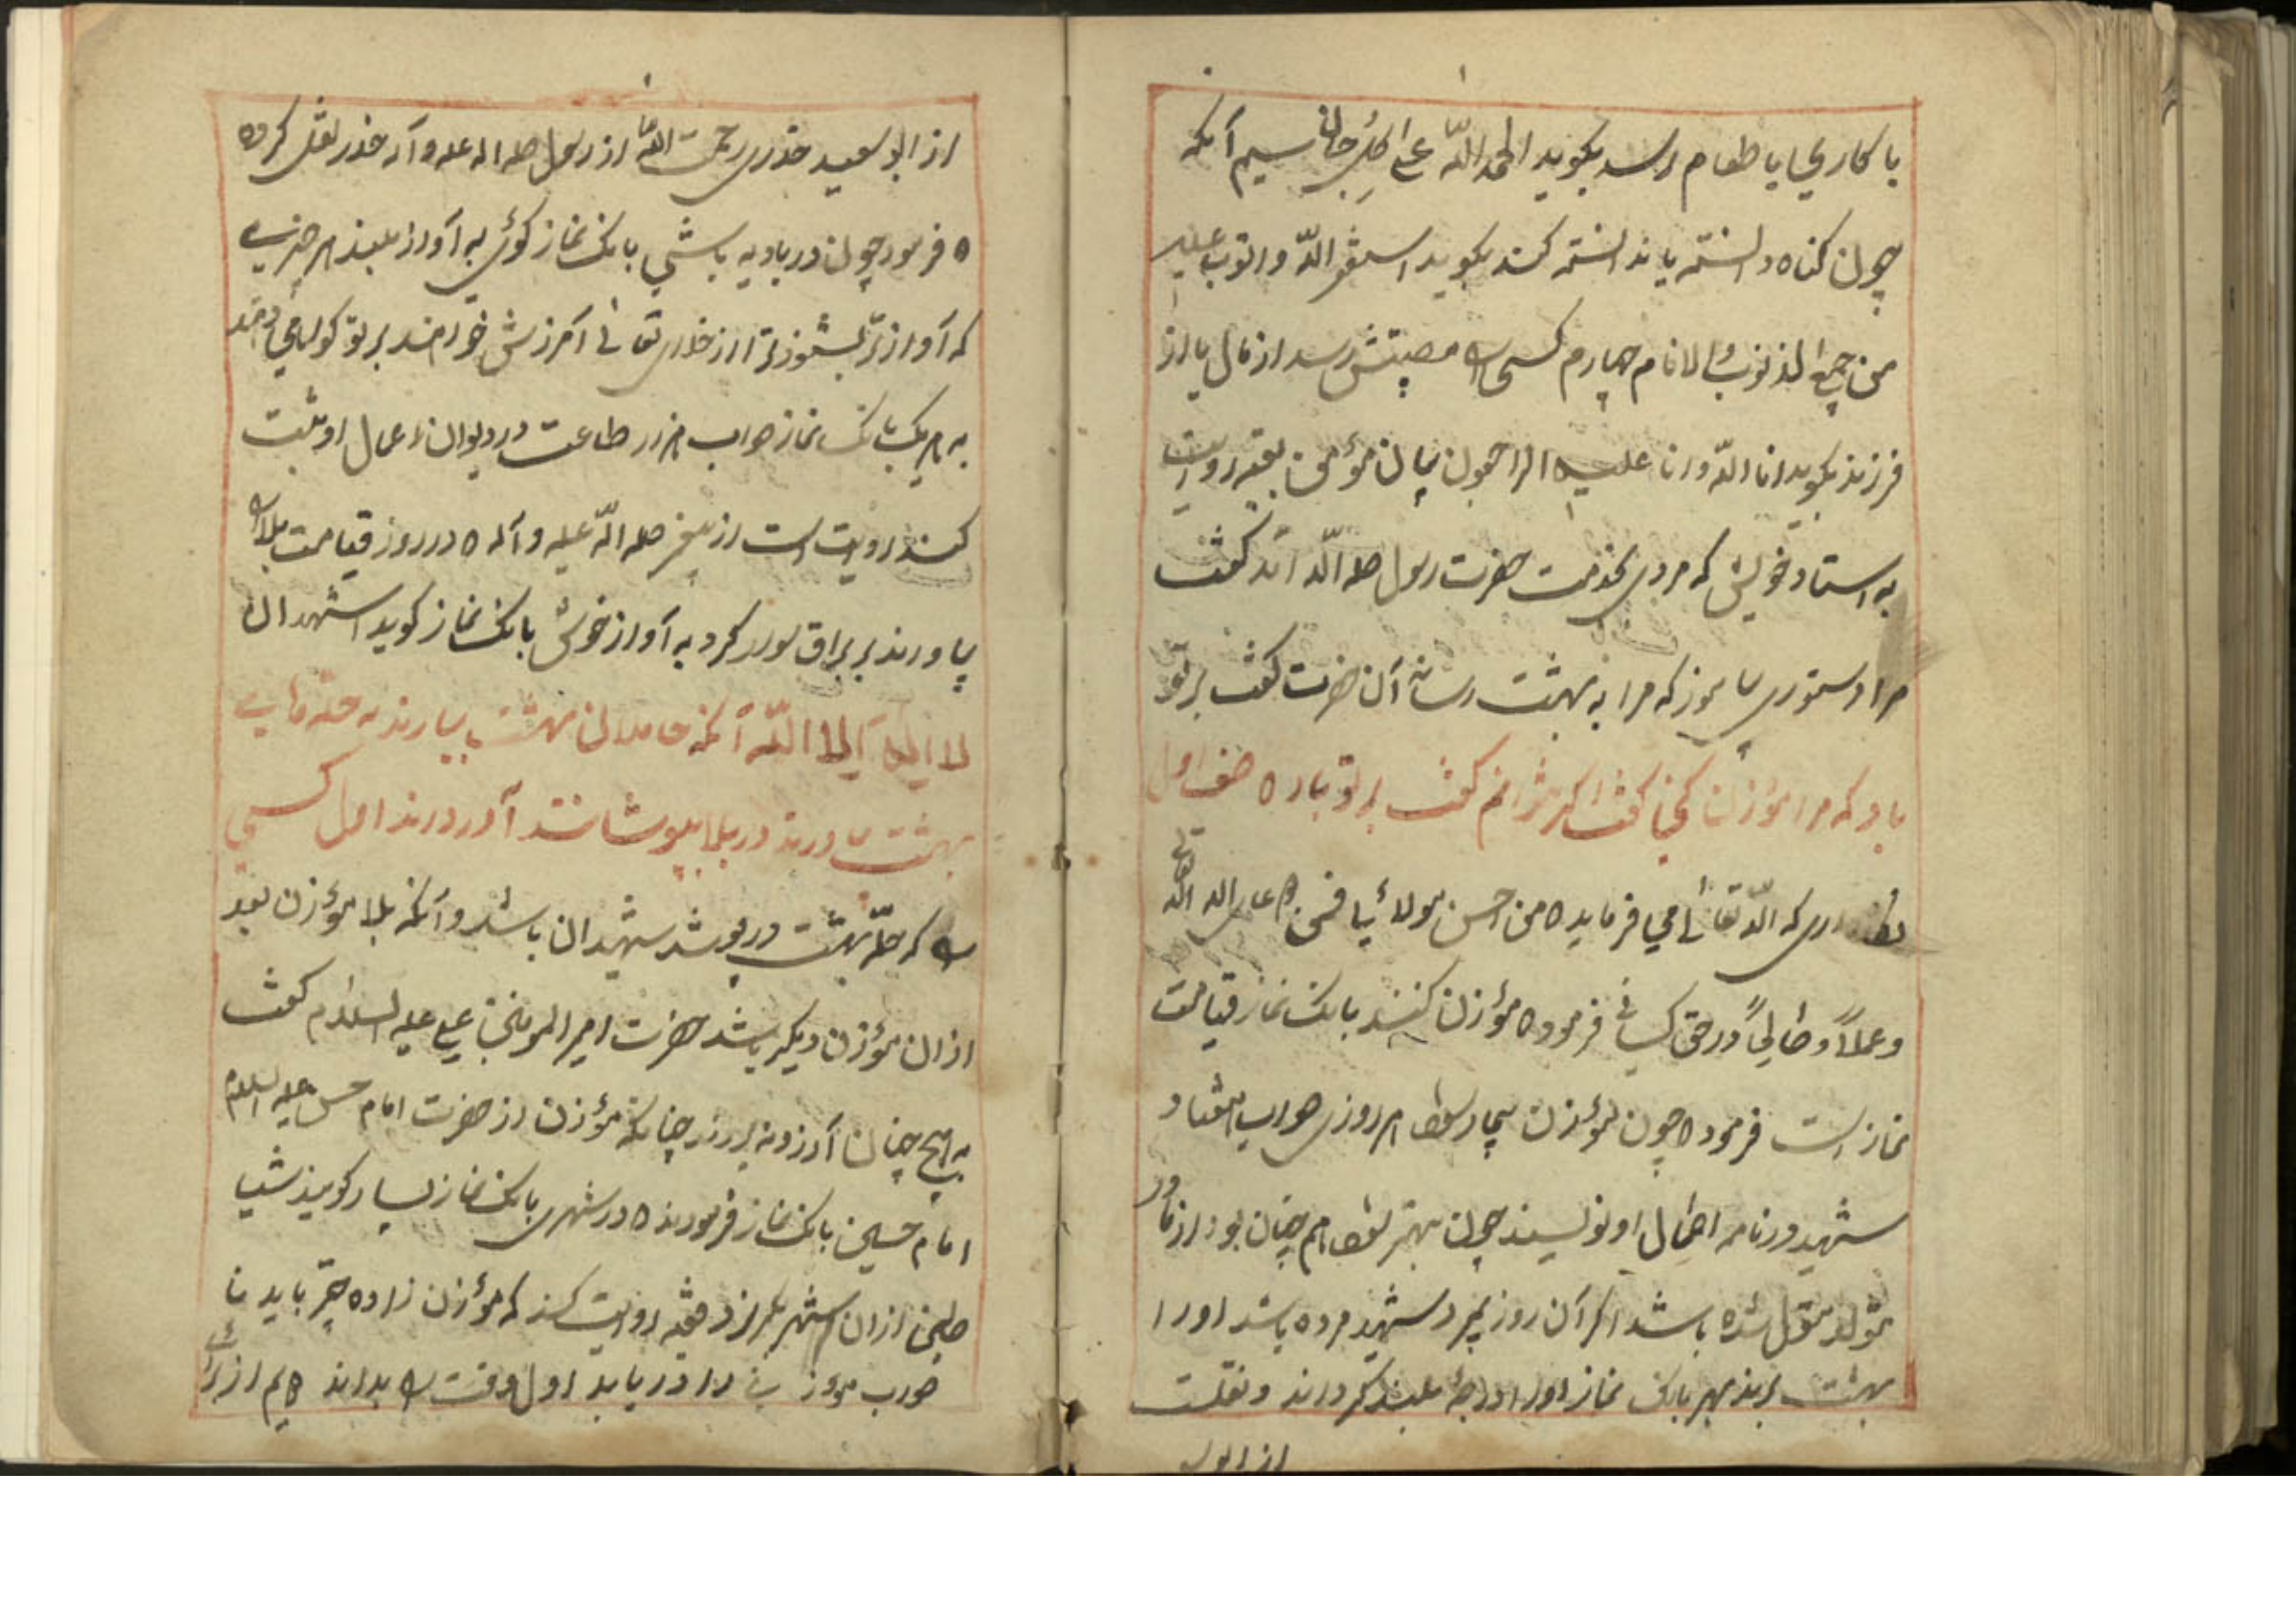 یا کاری یا طعام رسد بکوید الحمد اللّه علی کل حال سیم آنکه
چون کناه دانسته یا ندانسته کند بکوید استغفر اللّه و اتوب علیه
من جمیع الذنوب والاثام چهارم کسی را مصیبتش رسد از مال یا از
فرزند بکوید انا اللّه و انا علیه الراجعون بیان مؤمن بقیه روایت
به استاد خویش که مردی بخدمت حضرت رسول صله اللّه آمد کفت
مرا دستوری بیاموز که مرا به بهشت رساند آن حضرت کفت بر تو
باد که مرا مؤذن کفت اکر نتوانم کفت بر تو باد ه صف اول
که اللّه تعالی می فرماید ه من احسن
و عملاً و صالحاً در حق کسانی فرموده مؤذن کنند بانک نماز قیامت
نماز است فرمود ه چون مؤذن بیمار شود هر روزی صواب هفتاد
شهید در نامه اعمال او نویسند چون بهتر شود هم چنان بود از مادر
متولد شده باشد اکر آن روز بمیرد شهید مرده باشد او را
بهشت برند بهر بانک نماز او را درجه بلند کردانند و نقلست
از ابو
از ابو سعید خذری رحمت اللّه از رسول صله اله علیه و آله خذر نقل کرده
ه فرمود چون در بادیه باشی بانک نماز کوی به آواز بلند هر چیزی
که آواز تو بشنود ترا از خدای تعالی آمرزش خواهند بر تو کواهی دهند
به هر یک بانک نماز صواب هزار طاعت در دیوان اعمال او ثبت
کنند روایت است از پیغمبر صله اللّه علیه و آله ه در روز قیامت بلال را
بیاورند بر براق سوار کرد به آواز خوش بانک نماز کوید اشهد ان
لا اله الا اللّه آنکه حامدان بهشت بیارند حله های
بهشت بیاورند در بلال بپوشانند اول کسی
را که حلّه بهشت در پوشد شهیدان باشد و آنکه بلال مؤذن بعد
از آن مؤذن دیکر باشد حضرت امیر المومنین علی علیه السلام کفت
به هیچ چنان آرزو نبردند چنانکه مؤذن از حضرت امام حسن علیه السلام
امام حسین بانک نماز فرمودند ه در شهری بانک نماز بسیار کویند شیا
طین از آن شهر بکریزند روایت کنند که مؤذن زاده چیز باید تا
صواب مؤذنی را دریابد اول وقت را بداند دیم از برای